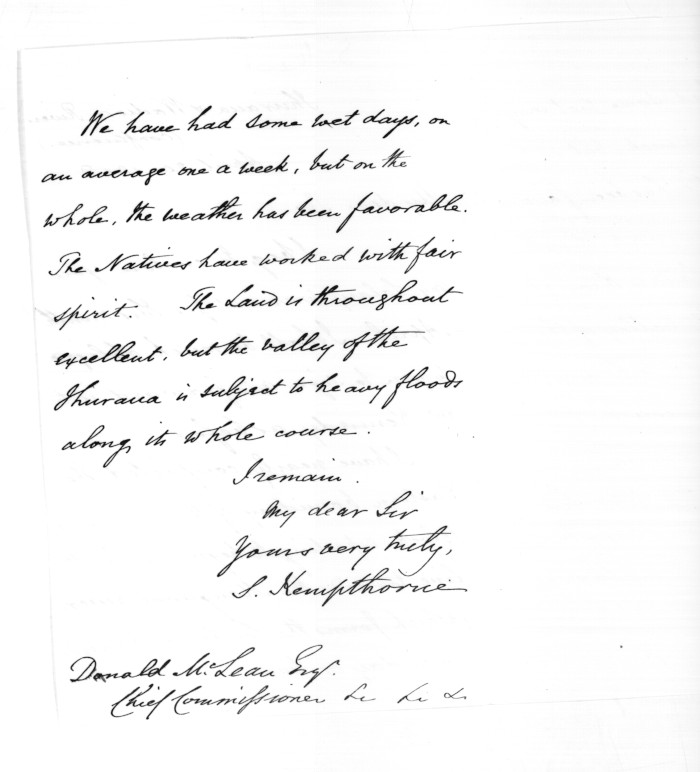 We have had some wet days, on
an average one a week, but on the
whole, the weather has been favorable.
The Natives have worked with fair
spirit. The Land is throughout
excellent, but the valley of the
Ihuraua is subject to heavy floods
along its whole course.
I remain.
My dear Sir
Yours very truly,
S. Kempthorne
Donald McLean Esqr.
Chief Commissioner &c &c &c